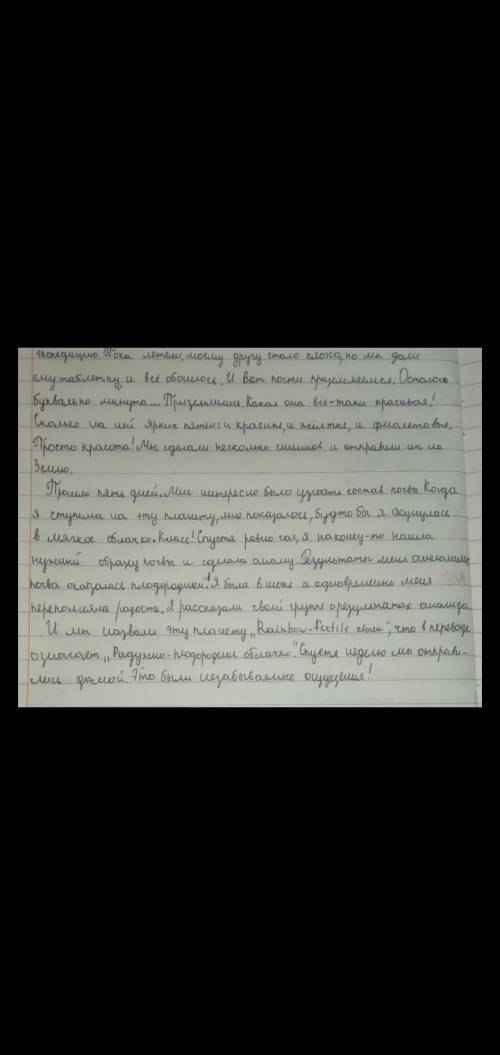 экспедицию. Пока летели, моему другу стало плохо, но мы дали
ему таблетку, и всё обошлось. И вот почти приземляемся. Осталось
буквально минута... Приземлились. Какая она всё-таки красивая!
Сколько на ней ярких пятен: и красных, и жёлтых, и фиолетовые.
Просто красота! Мы сделали несколько снимков и отправили их на
Землю.
Прошло пять дней. Мне интересно было узнать состав почвы. Когда
я ступила на эту планету, мне показалось, будто бы я окунулась
в мягкое облачко. Класс! Спустя ровно час, я наконец-то нашла
нужный образец почвы и сделала анализ. Результаты меня ошеломили:
почва оказалась плодородной! Я была в шоке и одновременно меня
переполняла радость. Я рассказала своей группе о результатах анализа.
И мы назвали эту планету „Rainbow-Fertile cloud", что в переводе
означает „Радужно-плодородное облачко." Спустя неделю мы отправи-
лись домой. Это были незабываемые ощущения!